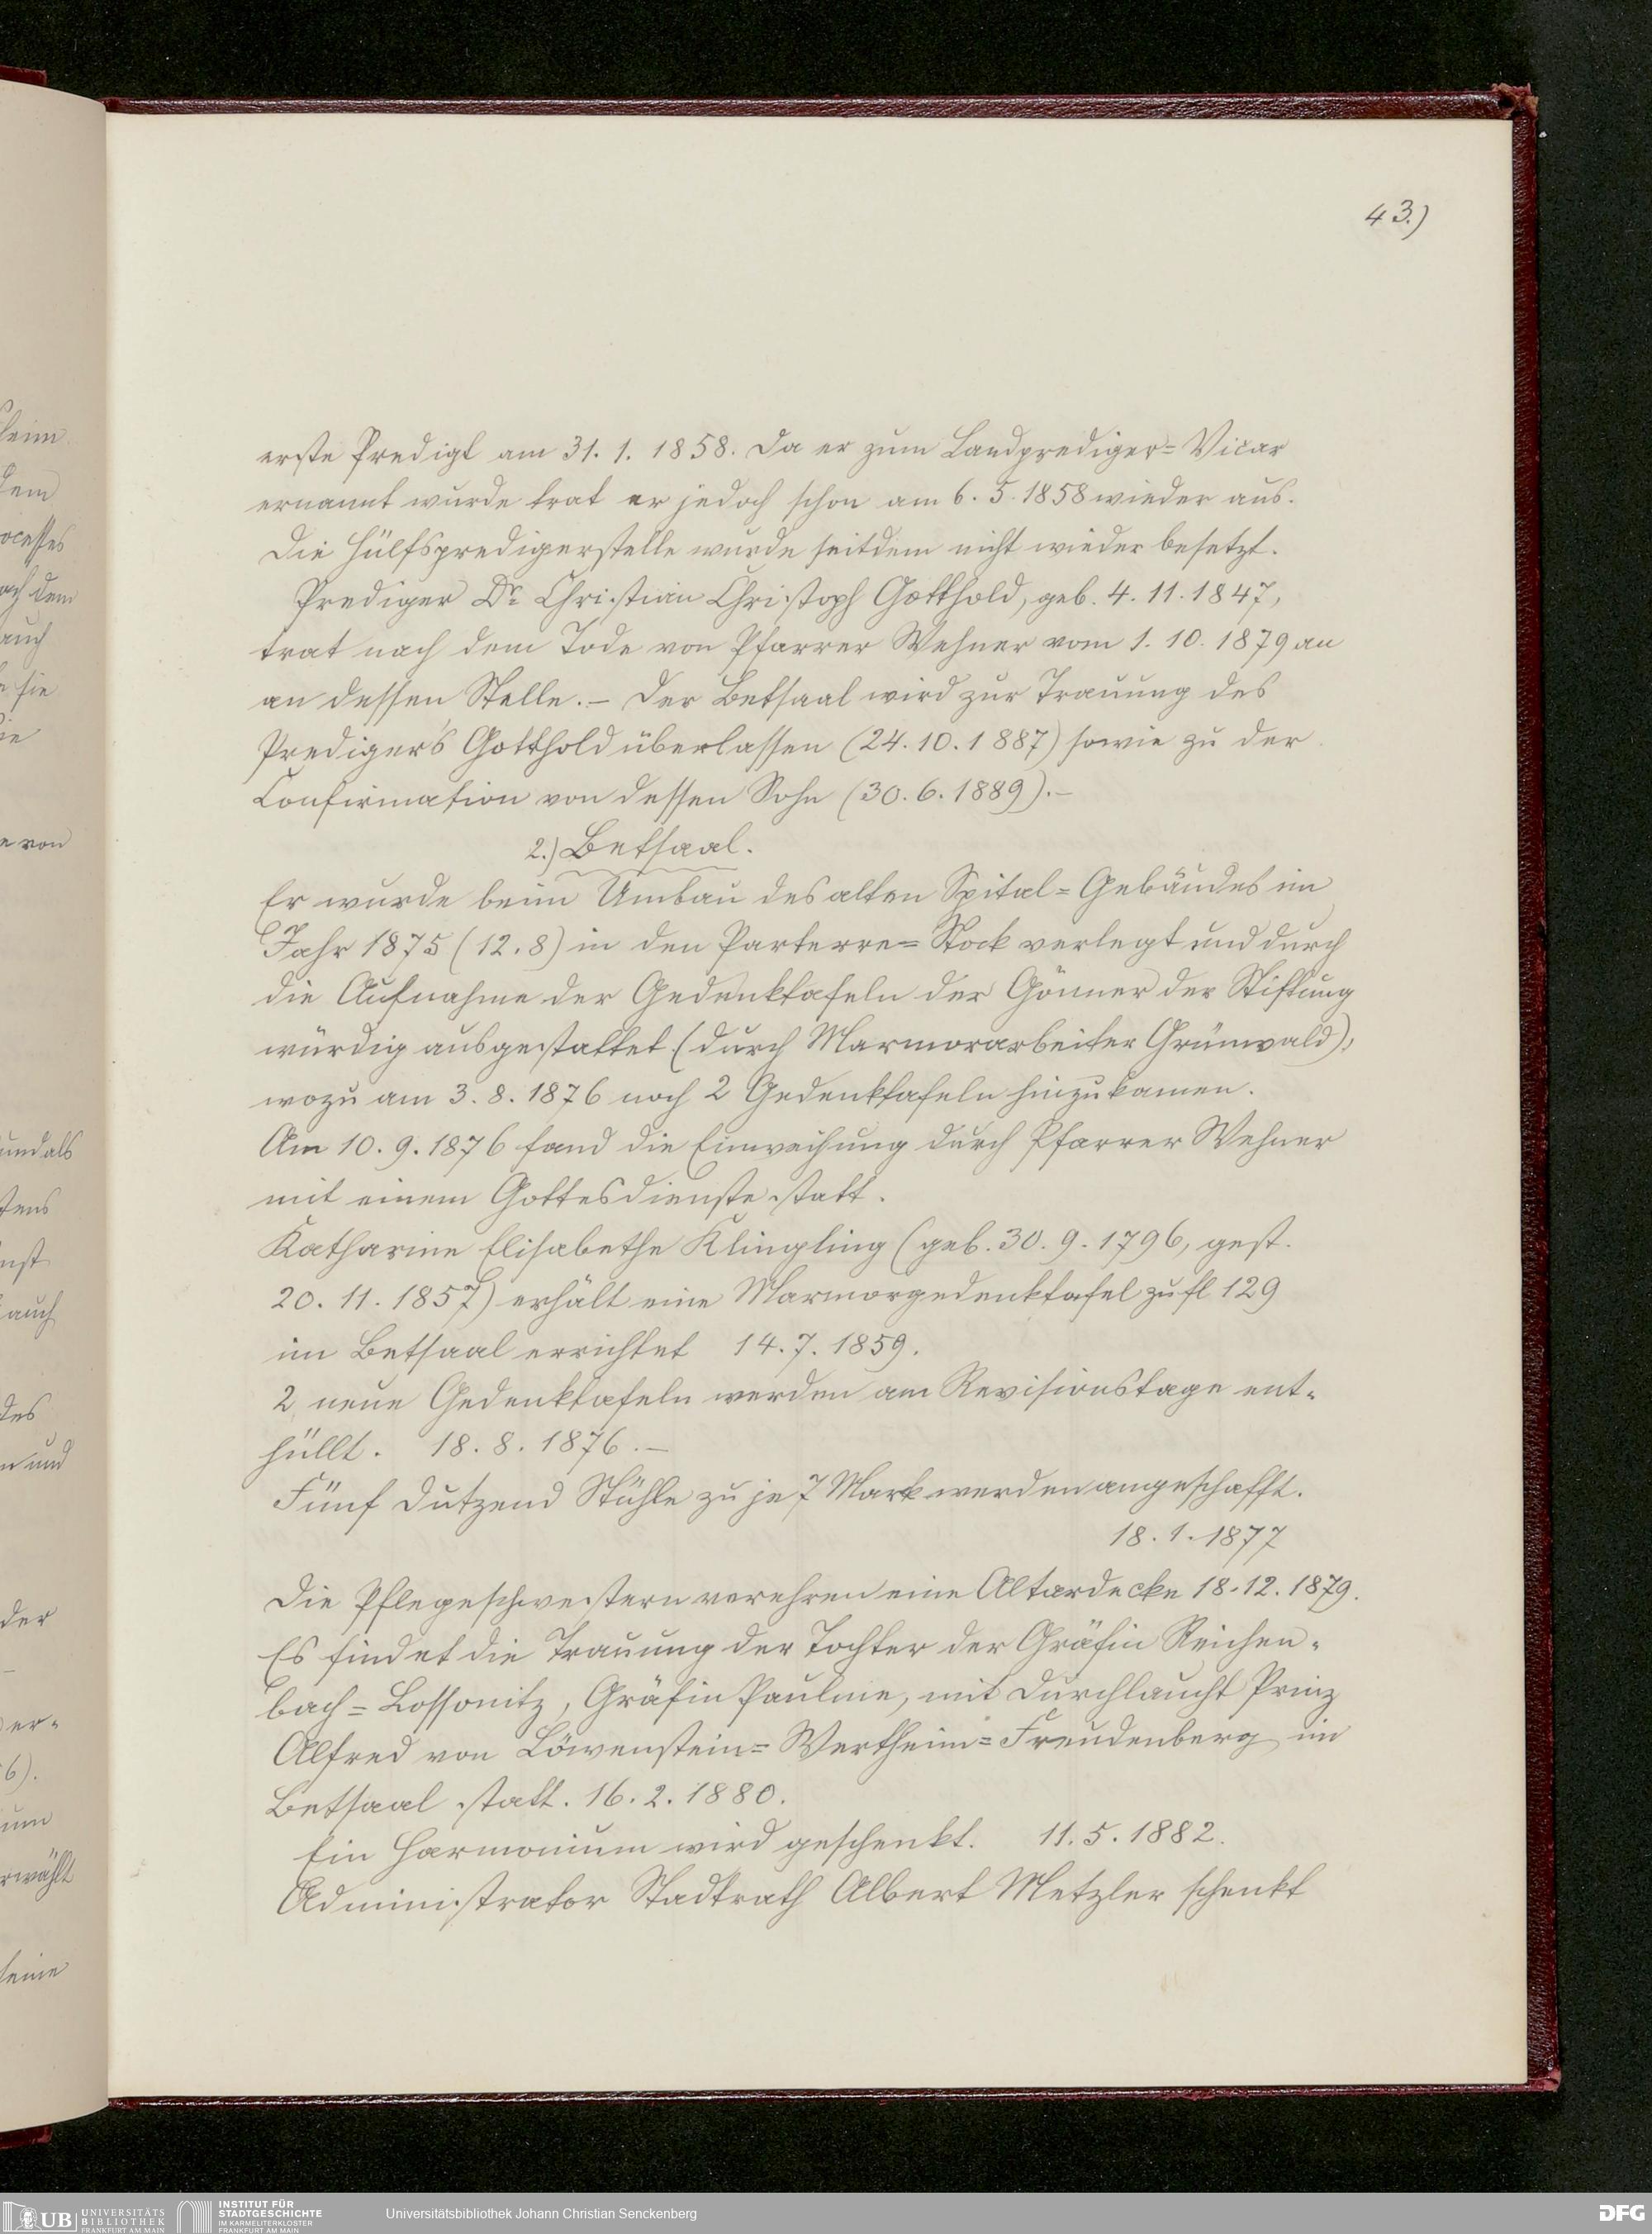 43.)
erste Predigt am 31. 1. 1858. Da er zum Landprediger=Vicar
ernannt wurde trat er jedoch schon am 6. 5. 1858 wieder aus.
Die Hülfspredigerstelle wurde seitdem nicht wieder besetzt.
Prediger Dr. Christian Christoph Gotthold, geb. 4. 11. 1847,
trat nach dem Tode von Pfarrer Wehner vom 1. 10. 1879 an
an dessen Stelle. – Der Betsaal wird zur Trauung des
Predigers Gotthold überlassen (24. 10. 1887) sowie zu der
Confirmation von dessen Sohn (30. 6. 1889). –
2.) Betsaal.
Er wurde beim Umbau des alten Spital=Gebäudes im
Jahr 1875 (12. 8) in den Parterre=Stock verlegt und durch
die Aufnahme der Gedenktafeln der Gönner der Stiftung
würdig ausgestattet (durch Marmorarbeiter Grünwald),
wozu am 3. 8. 1876 noch 2 Gedenktafeln hinzukamen.
Am 10. 9. 1876 fand die Einweihung durch Pfarrer Wehner
mit einem Gottesdienste statt.
Katharine Elisabethe Klingling (geb. 30. 9. 1796, gest.
20. 11. 1857) erhält eine Marmorgedenktafel zu fl 129
im Betsaal errichtet 14. 7. 1859.
2 neue Gedenktafeln werden am Revisionstage ent-
hüllt. 18. 8. 1876. –
Fünf Dutzend Stühle zu je 7 Mark werden angeschafft.
18. 1. 1877
Die Pflegeschwestern verehren eine Altardecke 18. 12. 1879.
Es findet die Trauung der Tochter der Gräfin Reichen-
bach=Lossonitz, Gräfin Pauline, mit Durchlaucht Prinz
Alfred von Löwenstein=Wertheim=Freudenberg im
Betsaal statt. 16. 2. 1880.
Ein Harmonium wird geschenkt. 11. 5. 1882.
Administrator Stadtrath Albert Metzler schenkt
UB UNIVERSITÄTS BIBLIOTHEK FRANKFURT AM MAIN
INSTITUT FÜR STADTGESCHICHTE IM KARMELITERKLOSTER FRANKFURT AM MAIN
Universitätsbibliothek Johann Christian Senckenberg
DFG